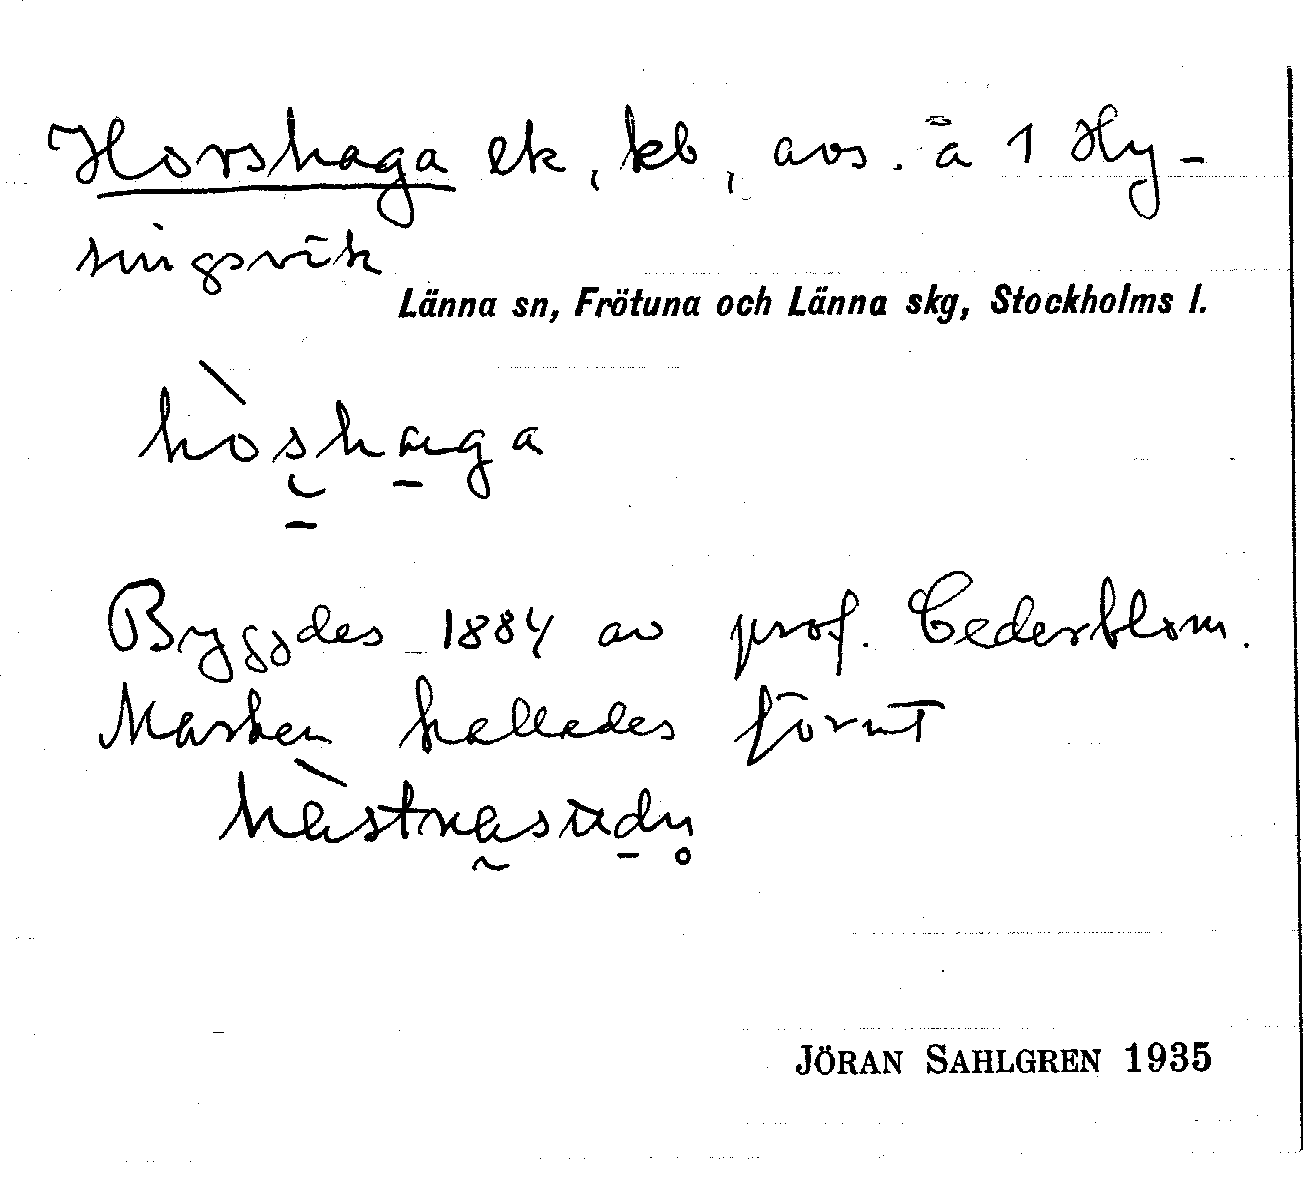 Horshaga ek, kb, avs. å 1 Hy-
singsvik
Länna sn, Frötuna och Länna skg, Stockholms l.
hòshaga
Byggdes 1884 av prof. Cederblom.
Marken kallades förut
JÖRAN SAHLGREN 1935